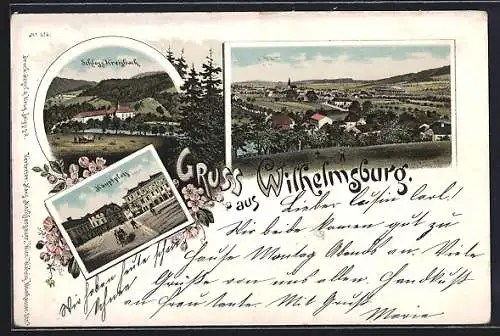 Schloss Kreisbach
Hauptplatz
Gruss
aus
Wilhelmsburg.
Lieber Cousin Carl.
Wir beide kamen gut zu
Hause Montag Abends an. Viele
Grüße von uns allen. Handkuß
an Frau tante. Mit Gruß
Marie
Wir haben heute schon
Schnee